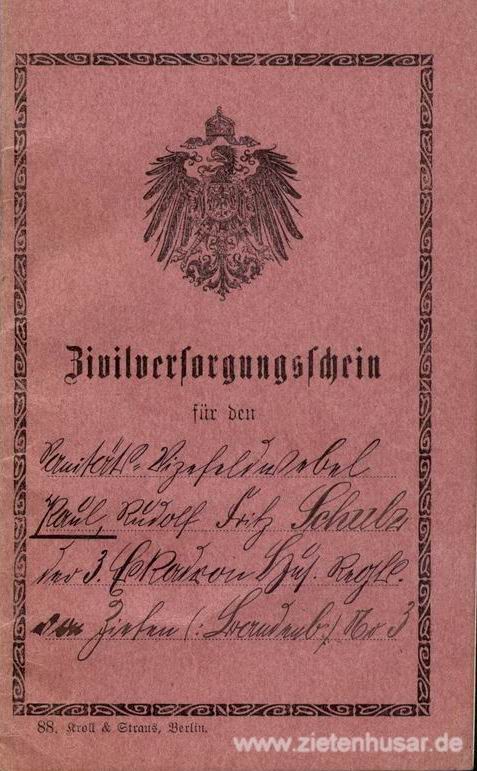 Zivilversorgungsschein
für den
Sanitäts-Vizefeldwebel
Paul, Rudolf Fritz Schulz
der 3. Eskadron Hus. Regts.
von Zieten (: Brandenb:) No 3
88. Kroll & Straus, Berlin.
www.zietenhusar.de